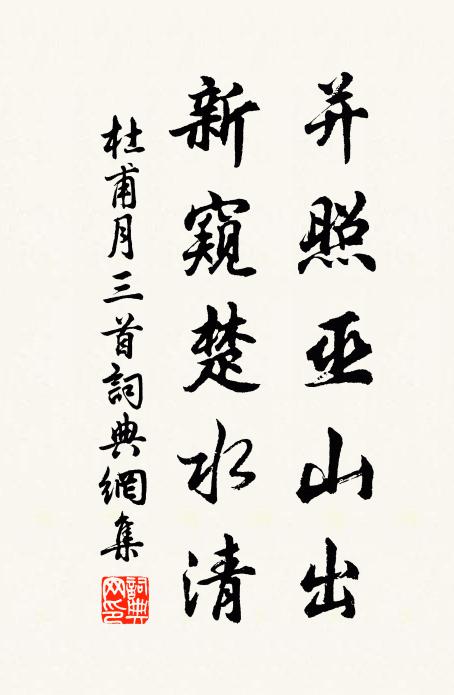 并照巫山出
新窺楚水清
杜甫月三首詞典網集
詞典網印